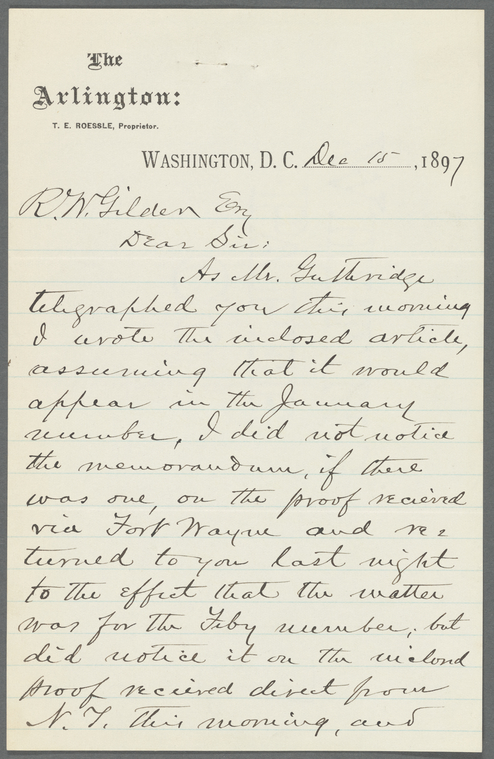 The
Arlington:
T. E. ROESSLE, Proprietor.
WASHINGTON, D. C. Dec 15, 1897
R. W. Gilder Esq
Dear Sir:
As Mr. Guthridge
telegraphed you this morning
I wrote the inclosed article,
assuming that it would
appear in the January
number, I did not notice
the memorandum, if there
was one, on the proof recieved
via Fort Wayne and re=
turned to you last night
to the effect that the matter
was for the Feby number; but
did notice it on the inclosed
proof recieved direct from
N. Y. this morning, and